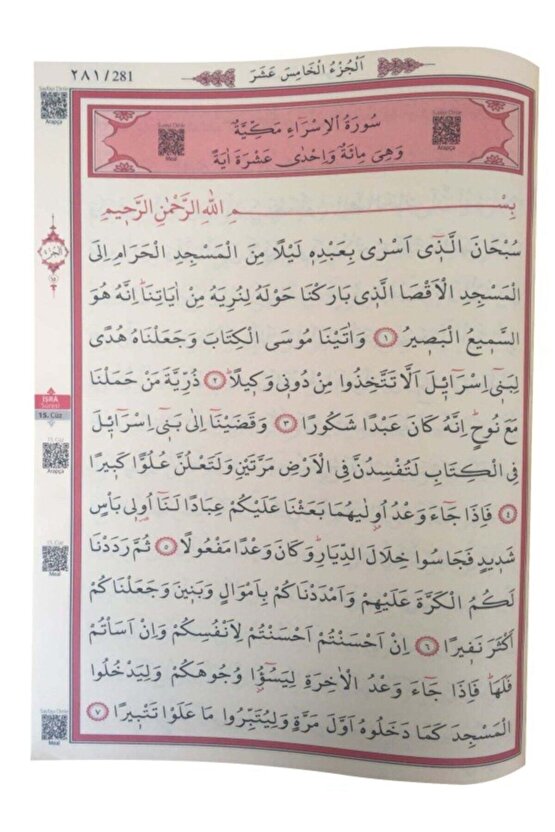 ٢٨١/281
اَلْجُزْءُ الْخَامِسَ عَشَرَ
سُورَةُ الْاِسْرَٓاءِ مَكِّيَّةٌ
وَهِيَ مِائَةٌ وَاِحْدٰى عَشْرَةَ اٰيَةً
بِسْمِ اللّٰهِ الرَّحْمٰنِ الرَّحِيمِ
سُبْحَانَ الَّذ۪ٓي اَسْرٰى بِعَبْدِه۪ لَيْلًا مِنَ الْمَسْجِدِ الْحَرَامِ اِلَى
الْمَسْجِدِ الْاَقْصَا الَّذ۪ي بَارَكْنَا حَوْلَهُ لِنُرِيَهُ مِنْ اٰيَاتِنَاۜ اِنَّهُ هُوَ
السَّم۪يعُ الْبَص۪يرُ ﴿١﴾ وَاٰتَيْنَا مُوسَى الْكِتَابَ وَجَعَلْنَاهُ هُدًى
لِبَن۪ٓي اِسْرَٓائ۪لَ اَلَّا تَتَّخِذُوا مِنْ دُون۪ي وَك۪يلًاۜ ﴿٢﴾ ذُرِّيَّةَ مَنْ حَمَلْنَا
مَعَ نُوحٍۜ اِنَّهُ كَانَ عَبْدًا شَكُورًا ﴿٣﴾ وَقَضَيْنَٓا اِلٰى بَن۪ٓي اِسْرَٓائ۪لَ
فِي الْكِتَابِ لَتُفْسِدُنَّ فِي الْاَرْضِ مَرَّتَيْنِ وَلَتَعْلُنَّ عُلُوًّا كَب۪يرًا
﴿٤﴾ فَاِذَا جَٓاءَ وَعْدُ اُو۫لٰيهُمَا بَعَثْنَا عَلَيْكُمْ عِبَادًا لَنَٓا اُو۬ل۪ي بَأْسٍ
شَد۪يدٍ فَجَاسُوا خِلَالَ الدِّيَارِۜ وَكَانَ وَعْدًا مَفْعُولًا ﴿٥﴾ ثُمَّ رَدَدْنَا
لَكُمُ الْكَرَّةَ عَلَيْهِمْ وَاَمْدَدْنَاكُمْ بِاَمْوَالٍ وَبَن۪ينَ وَجَعَلْنَاكُمْ
اَكْثَرَ نَف۪يرًا ﴿٦﴾ اِنْ اَحْسَنْتُمْ اَحْسَنْتُمْ لِاَنْفُسِكُمْ وَاِنْ اَسَأْتُمْ
فَلَهَاۜ فَاِذَا جَٓاءَ وَعْدُ الْاٰخِرَةِ لِيَسُٓؤُ۫ا وُجُوهَكُمْ وَلِيَدْخُلُوا
الْمَسْجِدَ كَمَا دَخَلُوهُ اَوَّلَ مَرَّةٍ وَلِيُتَبِّرُوا مَا عَلَوْا تَتْب۪يرًا ﴿٧﴾
Arapça
Meal
Arapça
İSRÂ
Suresi
15. Cüz
15. Cüz
Arapça
15. Cüz
Meal
Meal